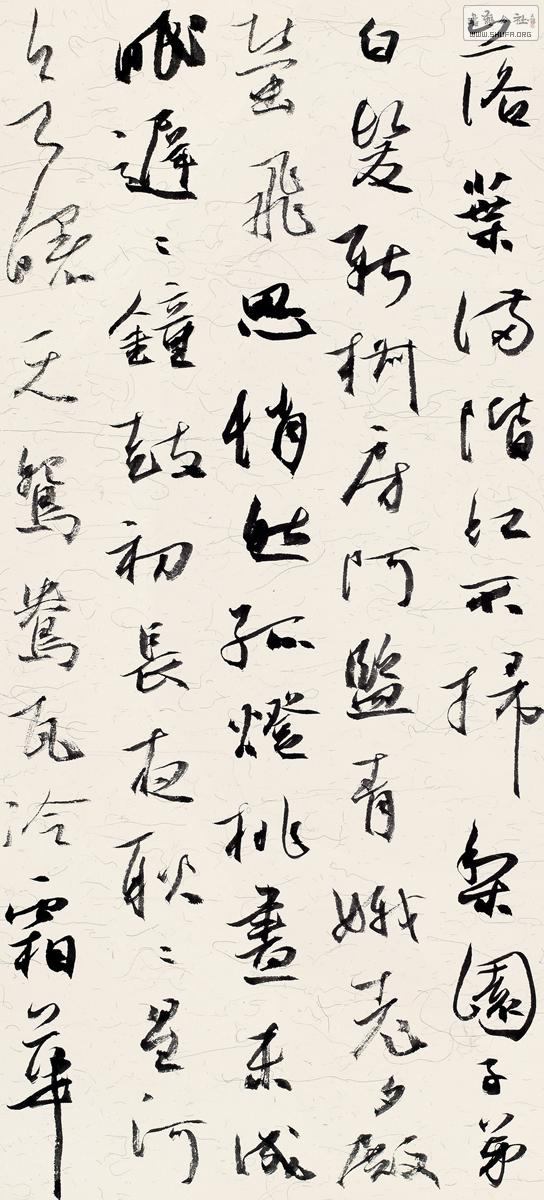 落葉滿階紅不掃梨園子弟
白髮新椒房阿監青娥老夕殿
螢飛思悄然孤燈挑盡未成
眠遲々鐘鼓初長夜耿々星河
欲曙天鴛鴦瓦冷霜華
WWW.SHUFA.ORG